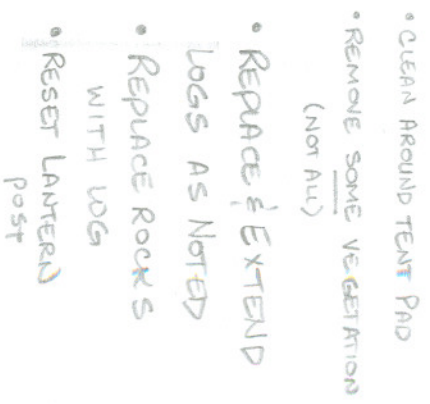 • CLEAN AROUND TENT PAD
• REMOVE SOME VEGETATION
(NOT ALL)
• REPLACE & EXTEND
LOGS AS NOTED
• REPLACE ROCKS
WITH LOG
• RESET LANTERN
POST